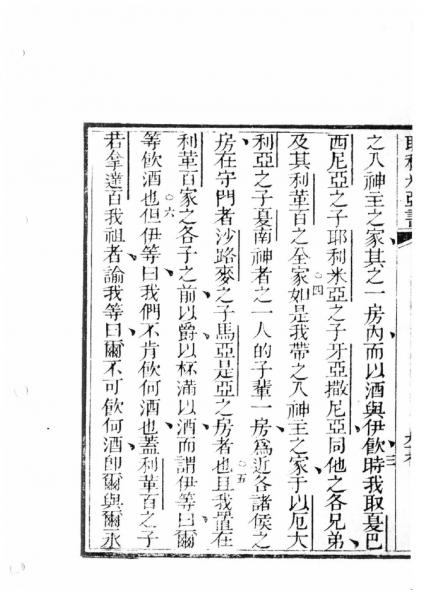 耶利米亞書
之入神主之家其之一房內而以酒與伊飲三時我取夏巴
西尼亞之子耶利米亞之子牙亞撒尼亞同他之各兄弟
及其利革百之全家○四如是我帶之入神主之家于以厄大
利亞之子夏南神者之一人的子輩一房爲近各諸侯之
房在守門者沙路麥之子馬亞是亞之房者也○五且我置在
利革百家之各子之前以爵以杯滿以酒而謂伊等曰爾
等飲酒也○六但伊等曰我們不肯飲何酒也蓋利革百之子
若拿達百我祖者諭我等曰爾不可飲何酒卽爾與爾永